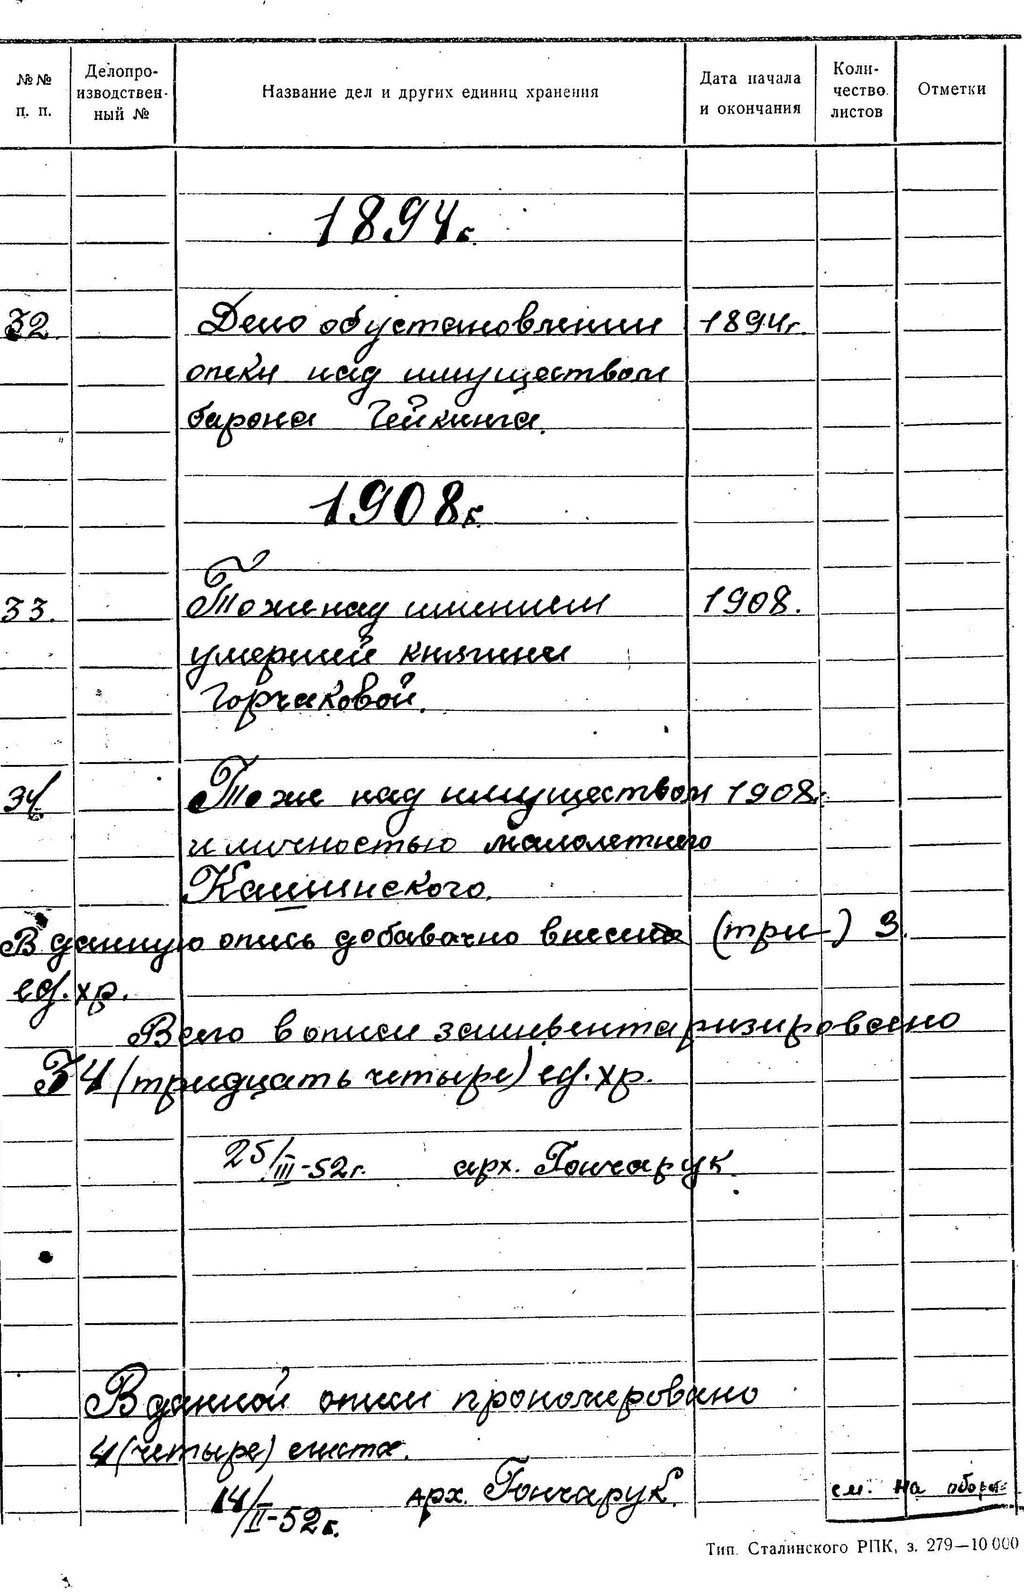 №№ п. п.
Делопро-
изводствен-
ный №
Название дел и других единиц хранения
Дата начала
и окончания
Коли-
чество
листов
Отметки
1894г.
32. Дело об установлении 1894г.
опеки над имуществом
барона Гейкинга.
1908г.
33. Тоже над имением 1908.
умершей княгини
Горчаковой.
34 Тоже над имуществом 1908г.
и личностью малолетнего
Кашинского.
В данную опись добавачно внесено (три) 3.
ед. хр.
Всего в описи заинвентаризировано
34 (тридцать четыре) ед. хр.
25/III-52г. арх. Гончарук.
В данной описи прономеровано
4 (четыре) листа.
14/II-52г. арх. Гончарук.
см. на оборот
Тип. Сталинского РПК, з. 279—10 000